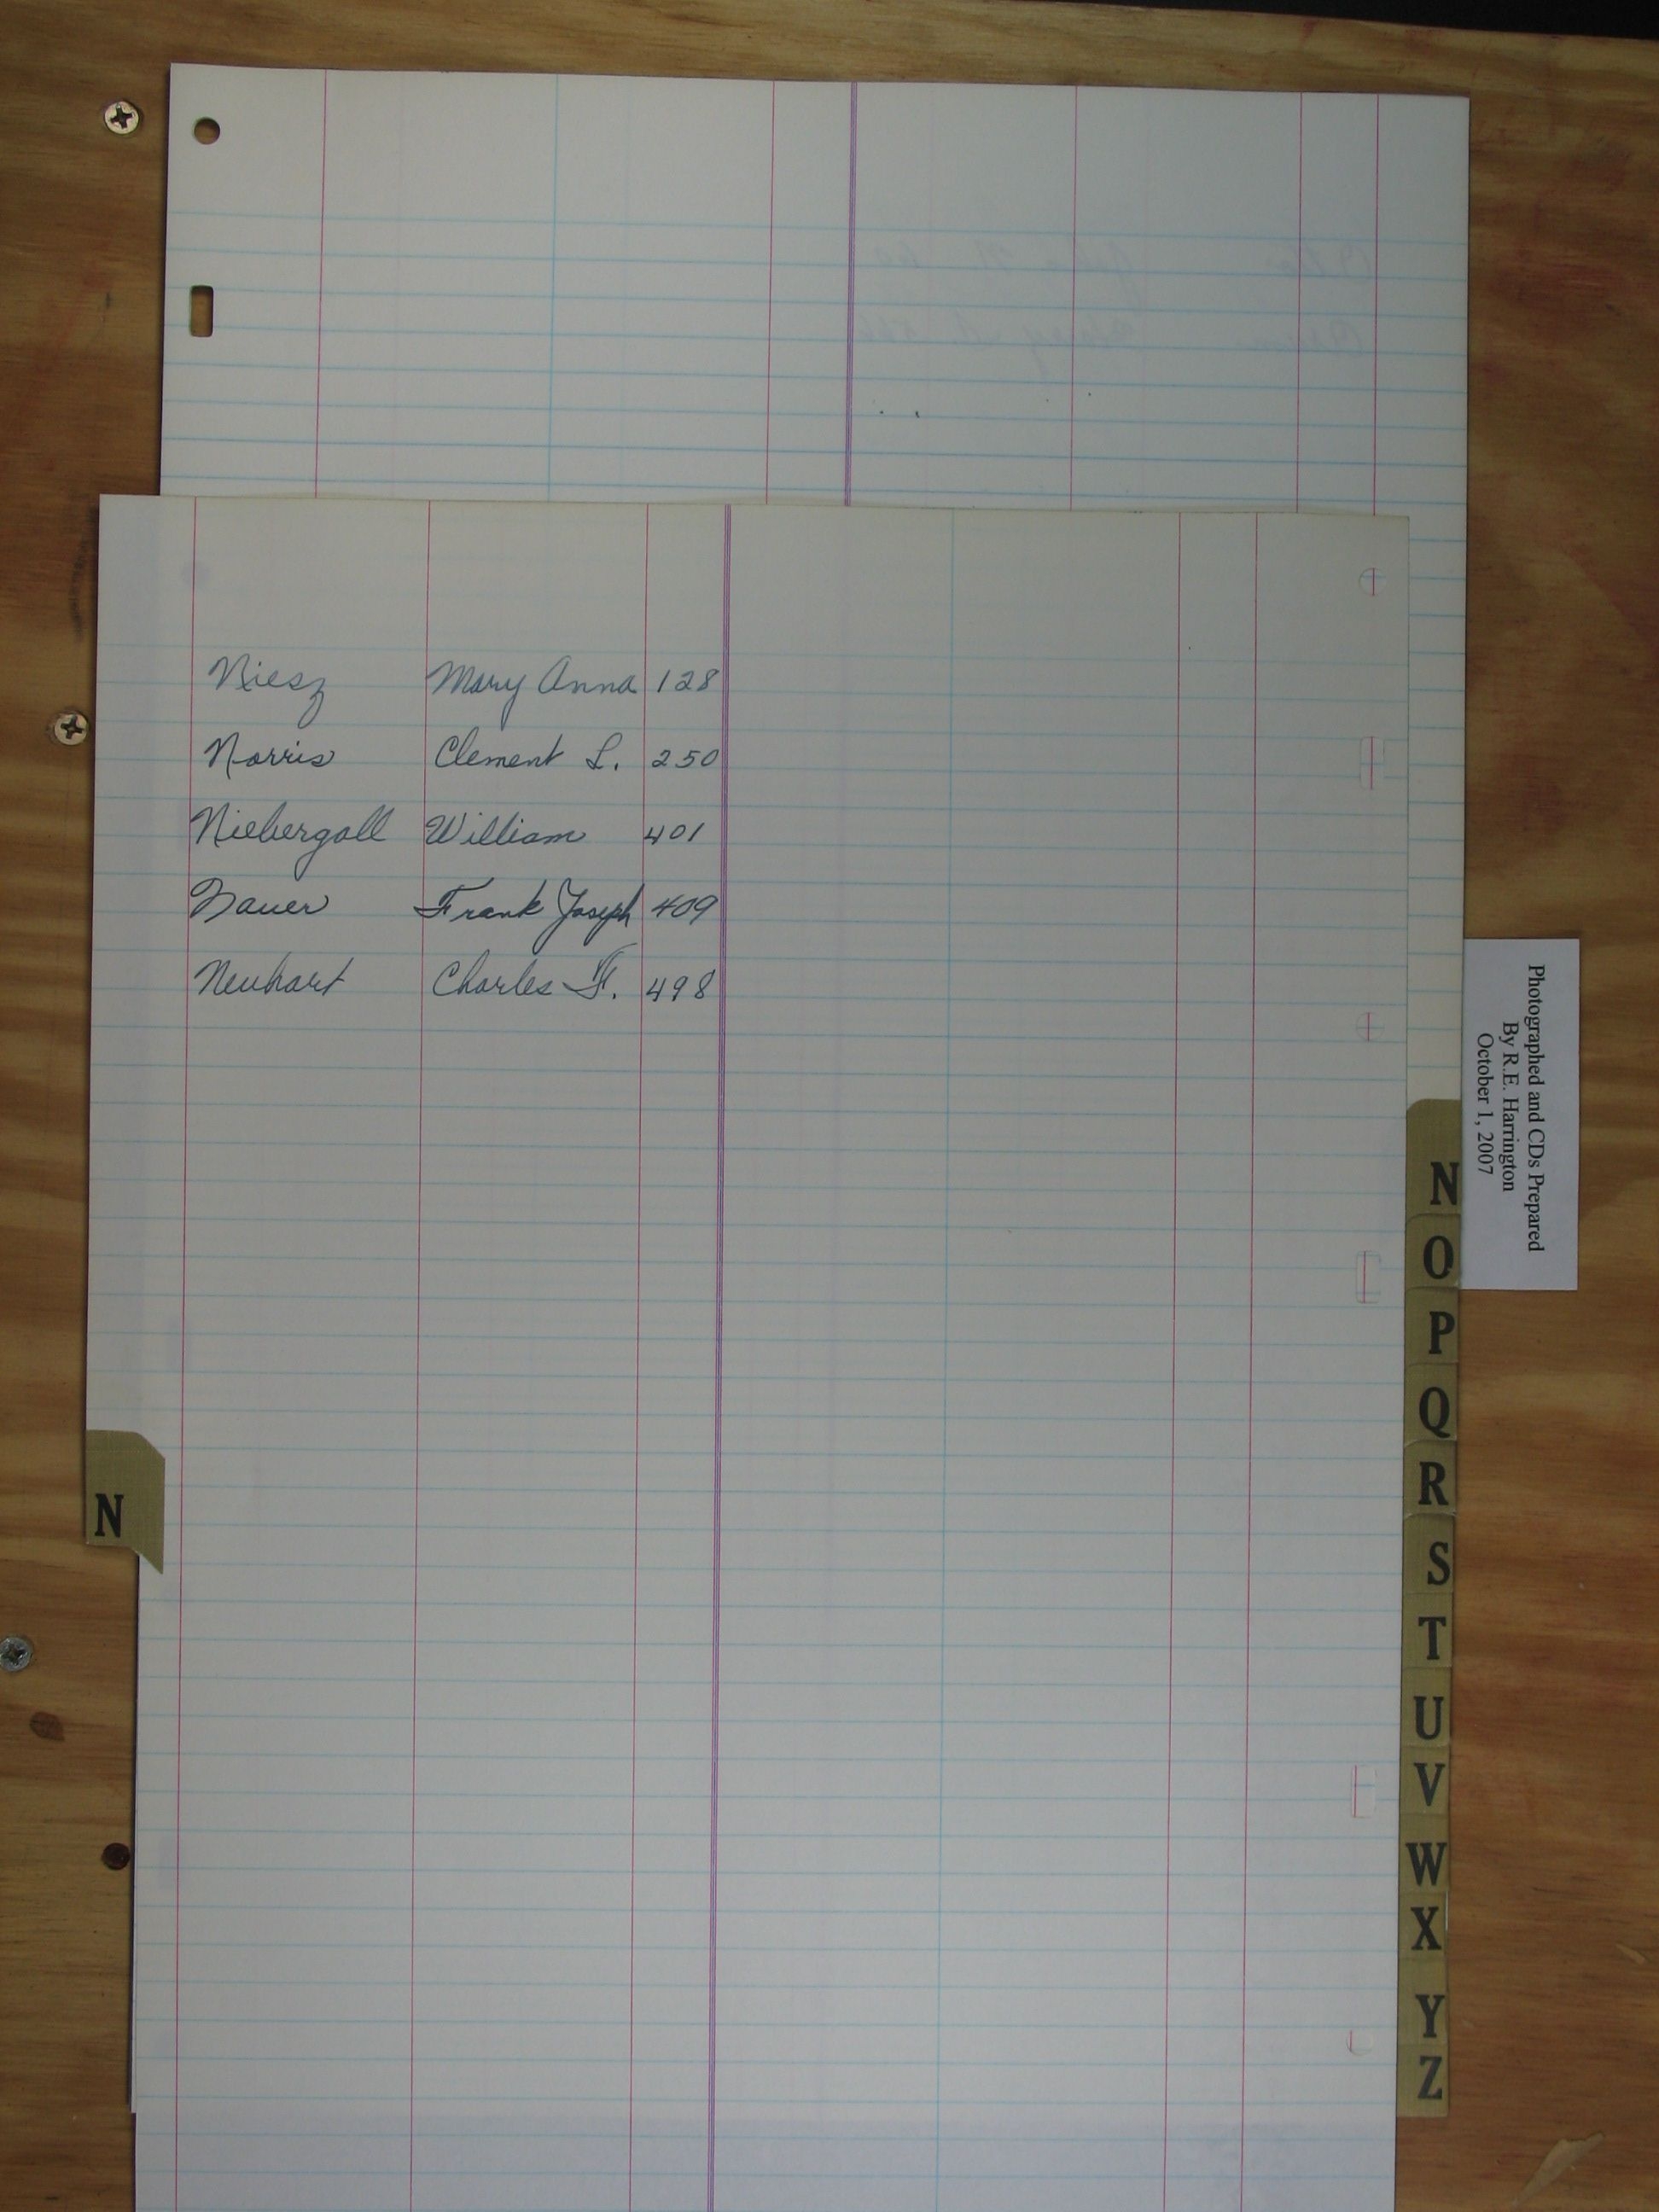 Niesz Mary Anna 128
Norris Clement L. 250
Niebergall William 401
Nauer Frank Joseph 409
Neuhart Charles F. 498
Photographed and CDs Prepared
By R.E. Harrington
October 1, 2007
N
O
P
Q
R
S
T
U
V
W
X
Y
Z
N